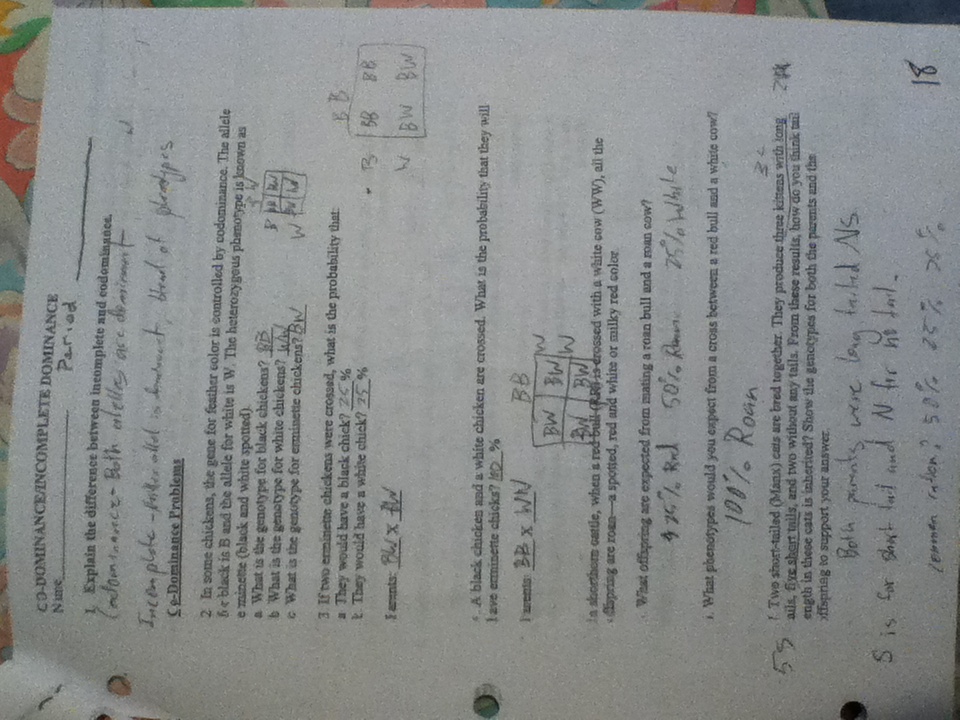 CO-DOMINANCE/INCOMPLETE DOMINANCE
Name Period
1. Explain the difference between incomplete and codominance.
Codominance - Both alleles are dominant
Incomplete - allel is dominant, blend of phenotypes
Co-Dominance Problems
2 In some chickens, the gene for feather color is controlled by codominance. The allele
for black is B and the allele for white is W. The heterozygous phenotype is known as
erminette (black and white spotted).
a What is the genotype for black chickens? BB
b What is the genotype for white chickens? WW
c What is the genotype for erminette chickens? BW
B W
B BB BW
W BW WW
3. If two erminette chickens were crossed, what is the probability that:
a They would have a black chick? 25 %
b. They would have a white chick? 25 %
Parents: BW X BW
B B
B BB BB
W BW BW
A black chicken and a white chicken are crossed. What is the probability that they will
have erminette chicks? 100 %
Parents: BB X WW
BB
BW BW W
BW BW W
In shorthorn cattle, when a red bull (RR) is crossed with a white cow (WW), all the
offspring are roan—a spotted, red and white or milky red color.
What offspring are expected from mating a roan bull and a roan cow?
25% Red 50% Roan 25% White
. What phenotypes would you expect from a cross between a red bull and a white cow?
100% Roan
3L
5S
. Two short-tailed (Manx) cats are bred together. They produce three kittens with long
tails, five short tails, and two without any tails. From these results, how do you think tail
length in these cats is inherited? Show the genotypes for both the parents and the
offspring to support your answer.
Both parents were long tailed NS
S is for short tail and N for no tail.
ration? 50% 25% 25%
18